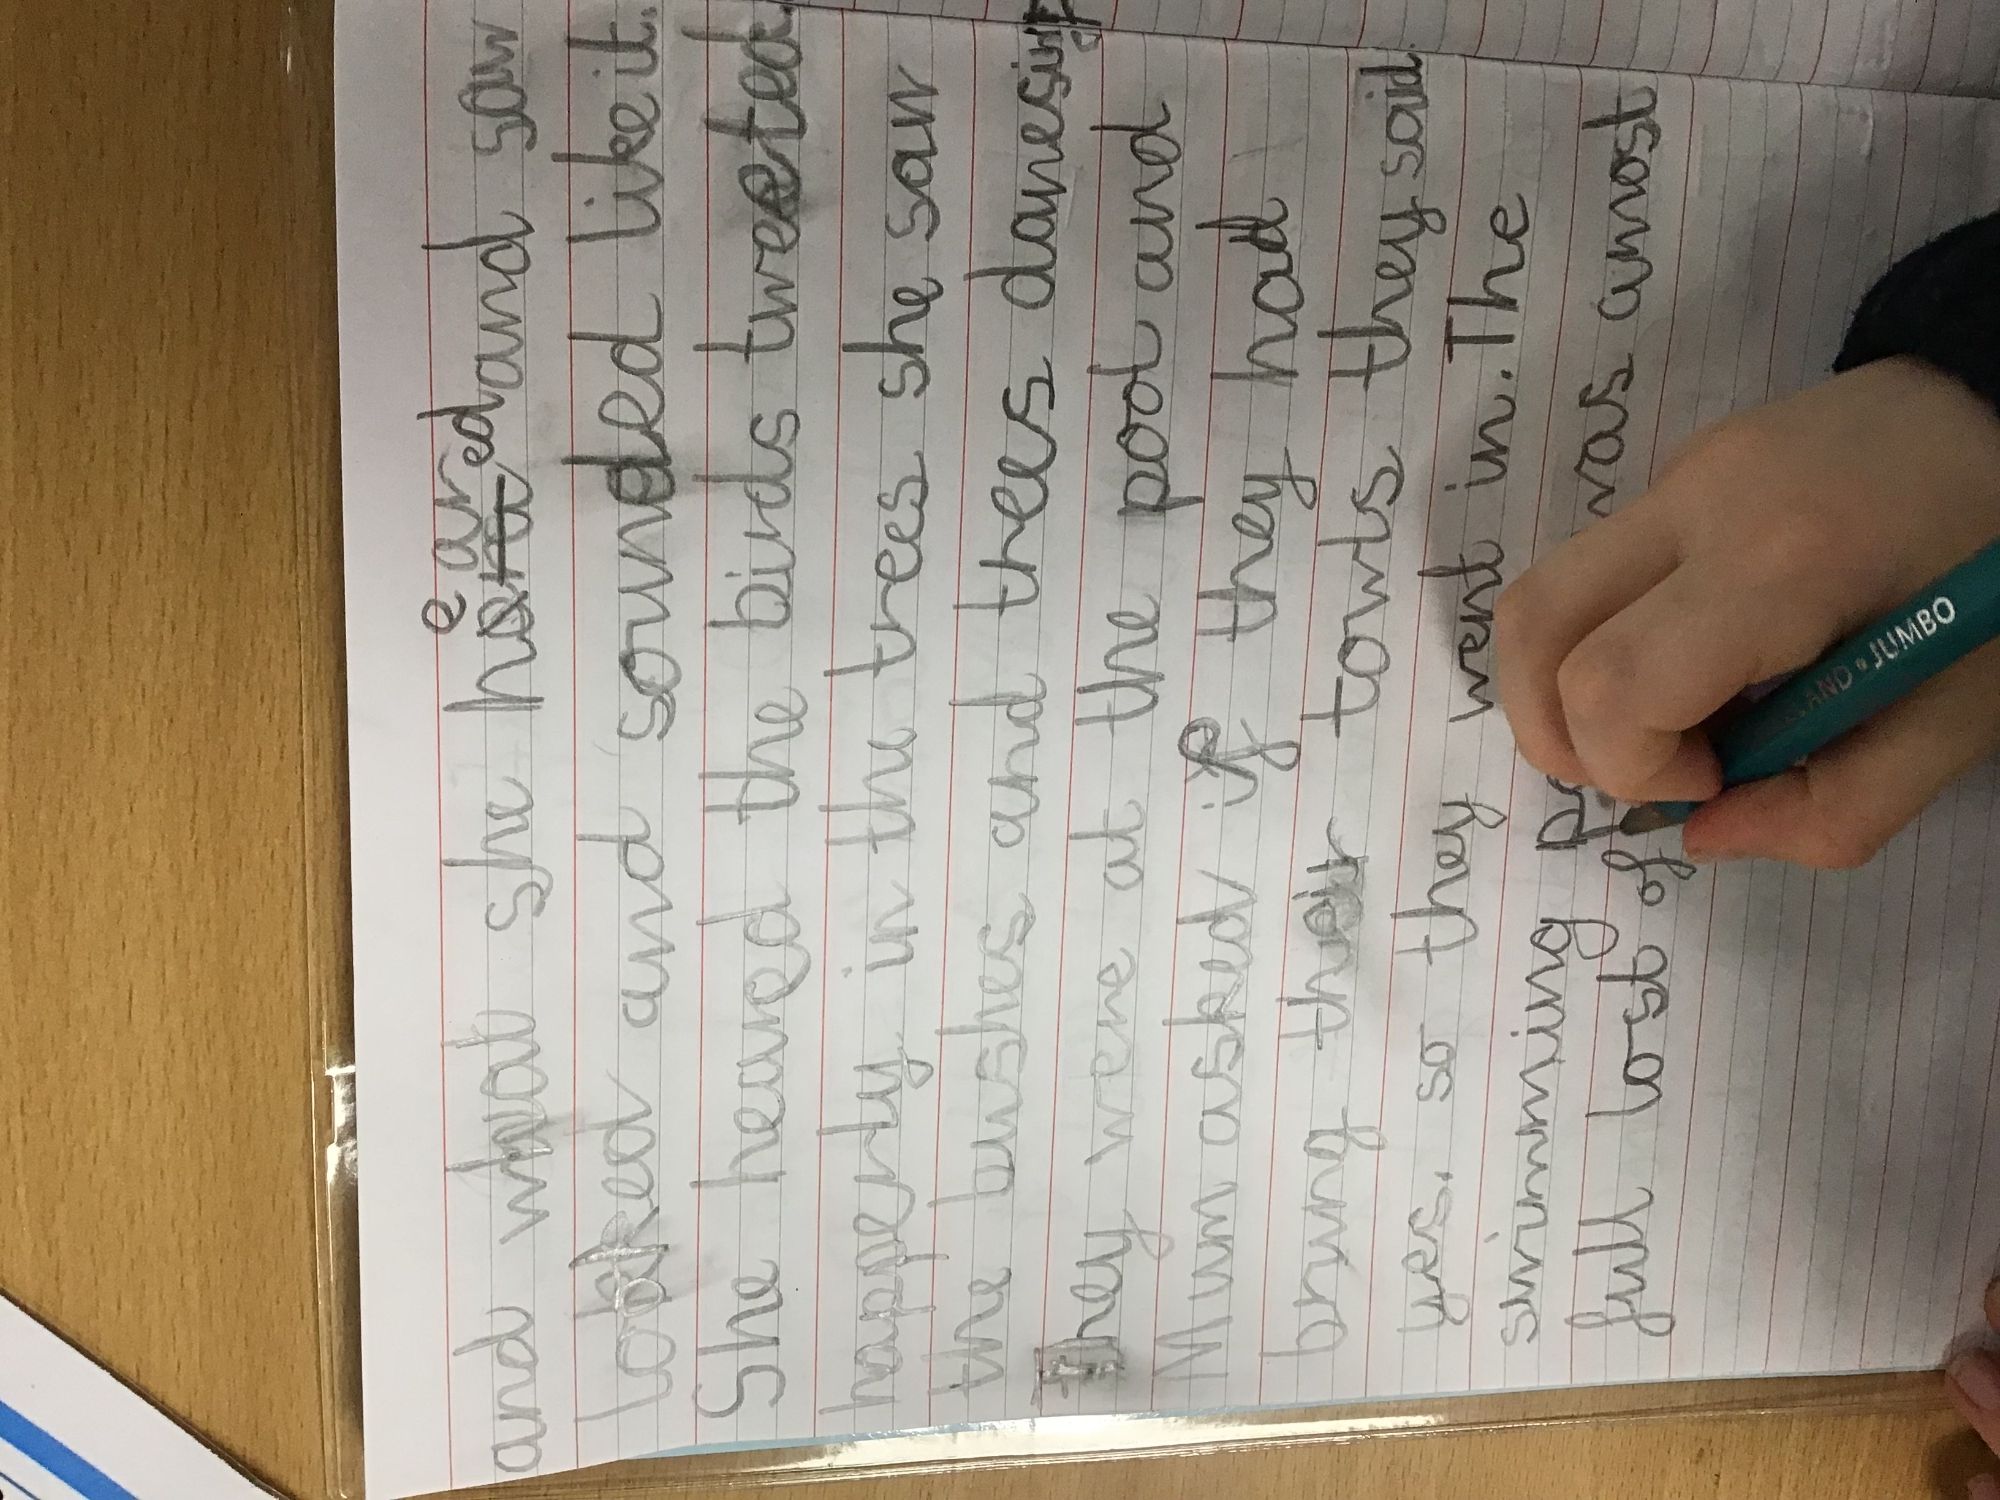 e ar
and what she heared and saw
looked and sounded like it.
She heared the birds tweeted
happerly in the trees she saw
the bushes and trees danesing
they were at the pool and
Mum asked if they had
bring their towls they said
yes. so they went in. The
swimming was amost
full lost of
AND JUMBO